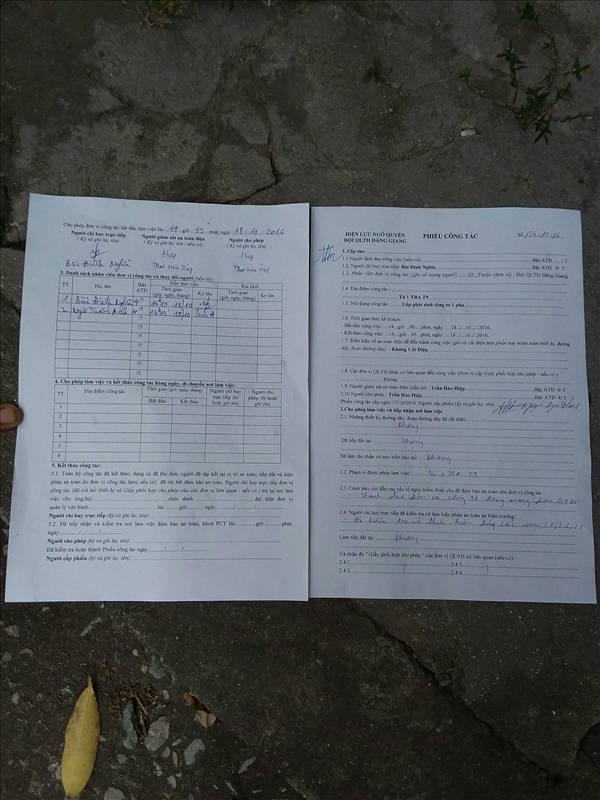 Cho phép đơn vị công tác bắt đầu làm việc lúc 14 giờ 15 phút, ngày 18.10.2016
Người chỉ huy trực tiếp
( Ký và ghi họ, tên)
Người giám sát an toàn điện
( Ký và ghi họ, tên - nếu có)
Người cho phép
( Ký và ghi họ, tên)
Hiep
Hiep
Bùi Đình Nghĩa
Trần Hữu Hiệp
Trần Hữu Hiệp
3. Danh sách nhân viên đơn vị công tác và thay đổi người (nếu có):
TT
Họ, tên
Bậc ATĐ
Đến làm việc
Rút khỏi
Thời gian (giờ, ngày, tháng)
Ký tên
Thời gian (giờ, ngày, tháng)
Ký tên
1 Bùi Đình Nghĩa 4/5
2
/5
/5
/5
/5
/5
/5
4. Cho phép làm việc và kết thúc công tác hàng ngày, di chuyển nơi làm việc:
TT
Địa điểm công tác
Thời gian (giờ, ngày, tháng)
Bắt đầu
Kết thúc
Người chỉ huy trực tiếp (ký hoặc ghi tên)
Người cho phép (ký hoặc ghi tên)
1
2
3
4
4
5. Kết thúc công tác:
5.1. Toàn bộ công tác đã kết thúc, dụng cụ đã thu dọn, người đã tập kết tại vị trí an toàn; tiếp đất và biện
pháp an toàn do đơn vị công tác làm( nếu có) đã rút hết đảm bảo an toàn. Người chỉ huy trực tiếp đơn vị
công tác
cho ông(bà) chức danh đại diện đơn vị
quản lý vận hành lúc giờ ngày
Người chỉ huy trực tiếp (ký và ghi họ, tên)
5.2. Đã tiếp nhận và kiểm tra nơi làm việc đảm bảo an toàn, khoá PCT lúc giờ phút,
ngày
Người cho phép (ký và ghi họ, tên)
Đã kiểm tra hoàn thành Phiếu công tác ngày
Người cấp phiếu (ký và ghi họ, tên)
ĐIỆN LỰC NGÔ QUYỀN
ĐỘI QLTH ĐẰNG GIANG
PHIẾU CÔNG TÁC
Số
1. Cấp cho:
1.1. Người lãnh đạo công việc (nếu có) Bậc ATĐ /5
1.2. Người chỉ huy trực tiếp: Bùi Đình Nghĩa Bậc ATĐ 4/ 5
1.3. Nhân viên đơn vị công tác, (ghi số lượng người) 02 Thuộc (đơn vị): Đội QLTH Đằng Giang
1.4. Địa điểm công tác:
Tủ 1 TBA T9
1.5. Nội dung công tác: Lắp phát sinh công tơ 1 pha
1.6. Thời gian theo kế hoạch:
- Bắt đầu công việc 14 giờ 00 phút, ngày 18 / 10 / 2016
- Kết thúc công việc 14 giờ 45 phút, ngày 18 / 10 / 2016
1.7. Điều kiện về an toàn điện để tiến hành công việc (ghi rõ cắt điện một phần hay hoàn toàn thiết bị, đường
dây, đoạn đường dây) : Không Cắt Điện
1.8. Các đơn vị QLVH khác có liên quan đến công việc (Đơn vị cấp Giấy phối hợp cho phép - nếu có ):
Không
1.9. Người giám sát an toàn điện (nếu có) : Trần Hữu Hiệp Bậc ATĐ 4/ 5
1.10.Người cho phép : Trần Hữu Hiệp Bậc ATĐ 4/ 5
Phiếu công tác cấp ngày 17/10/2016. Người cấp phiếu (Ký và ghi họ, tên)
2.Cho phép làm việc và tiếp nhận nơi làm việc
2.1. Những thiết bị, đường dây, đoạn đường dây đã cắt điện:
Không
Đã tiếp đất tại Không
Đã làm rào chắn và treo biển báo tại Không
2.2. Phạm vi được phép làm việc: Tủ 1 TBA T9
2.3. Cảnh báo, chỉ dẫn các yếu tố nguy hiểm thiết yếu để đảm bảo an toàn cho đơn vị công tác
2.4. Người chỉ huy trực tiếp đã kiểm tra và làm biện pháp an toàn tại hiện trường:
Đã làm tiếp đất tại Không
Và nhận đủ " Giấy phối hợp cho phép " của đơn vị QLVH có liên quan (nếu có)
2.4.1
2.4.3
2.4.2
2.4.4